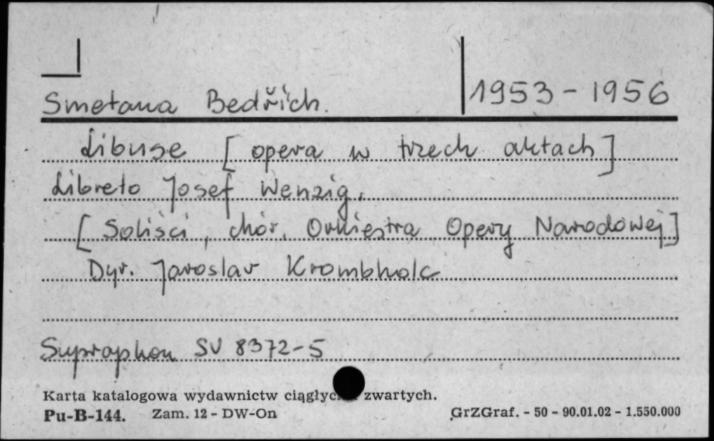 Smetana Bedřich. 1953-1956
Libuse [opera w trzech aktach]
Libreto Josef Wenzig.
[Soliści, chór, Orkiestra Opery Narodowej]
Dyr. Jaroslav Krombholc
Supraphon SV 8372-5
Karta katalogowa wydawnictw zwartych.
Pu-B-144. Zam. 12 - DW-On GrZGraf. - 50 - 90.01.02 - 1.550.000